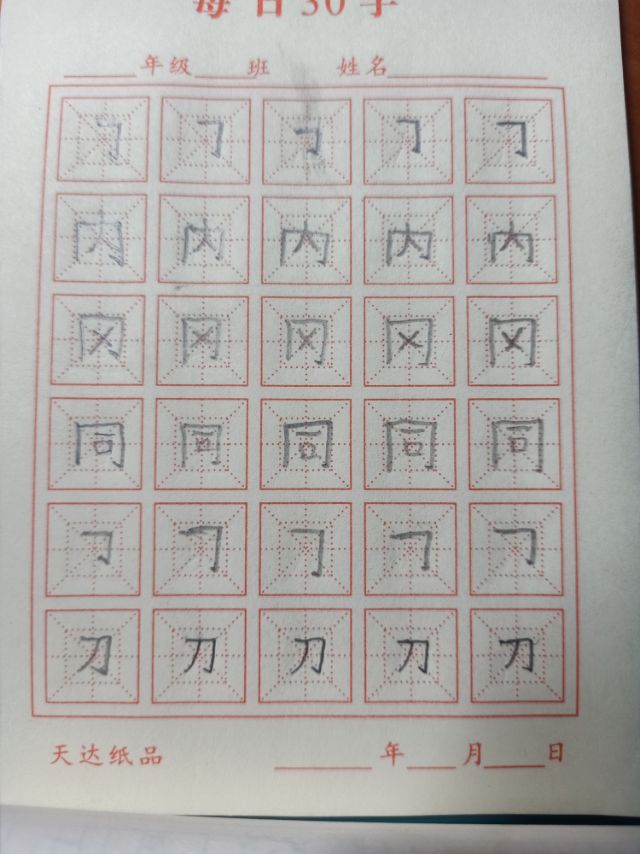 每日30字
年级 班 姓名
㇆ ㇆ ㇆ ㇆ ㇆
内 内 内 内 内
冈 冈 冈 冈 冈
同 同 同 同 同
㇆ ㇆ ㇆ ㇆ ㇆
刀 刀 刀 刀 刀
天达纸品 年 月 日